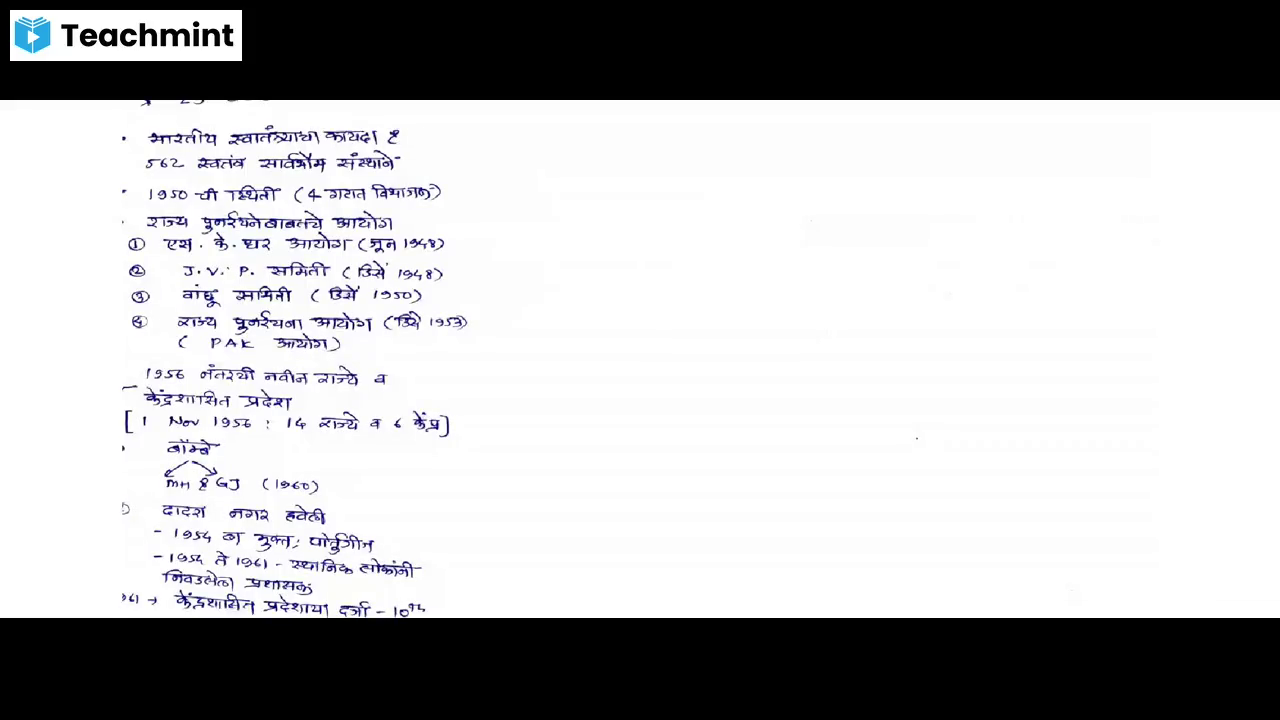 Teachmint
• भारतीय स्वातंत्र्याचा कायदा &
562 स्वतंत्र सार्वभौम संस्थाने
• 1950 ची स्थिती (4 गटात विभाजन)
• राज्य पुनर्रचनेबाबतचे आयोग
① एस. के. धर आयोग (जून 1948)
② J. V. P. समिती (डिसें 1948)
③ वांछू समिती (डिसें 1950)
④ राज्य पुनर्रचना आयोग (डिसें 1953)
( PAK आयोग)
1956 नंतरची नवीन राज्ये व
केंद्रशासित प्रदेश
[1 Nov 1956 : 14 राज्ये व 6 केंप्र]
• बॉम्बे
MH & GJ (1960)
दादरा नगर हवेली
- 1954 ला मुक्त: पोर्तुगीज
- 1954 ते 1961 - स्थानिक लोकांनी
निवडलेला प्रशासक
61 → केंद्रशासित प्रदेशाचा दर्जा - 10th